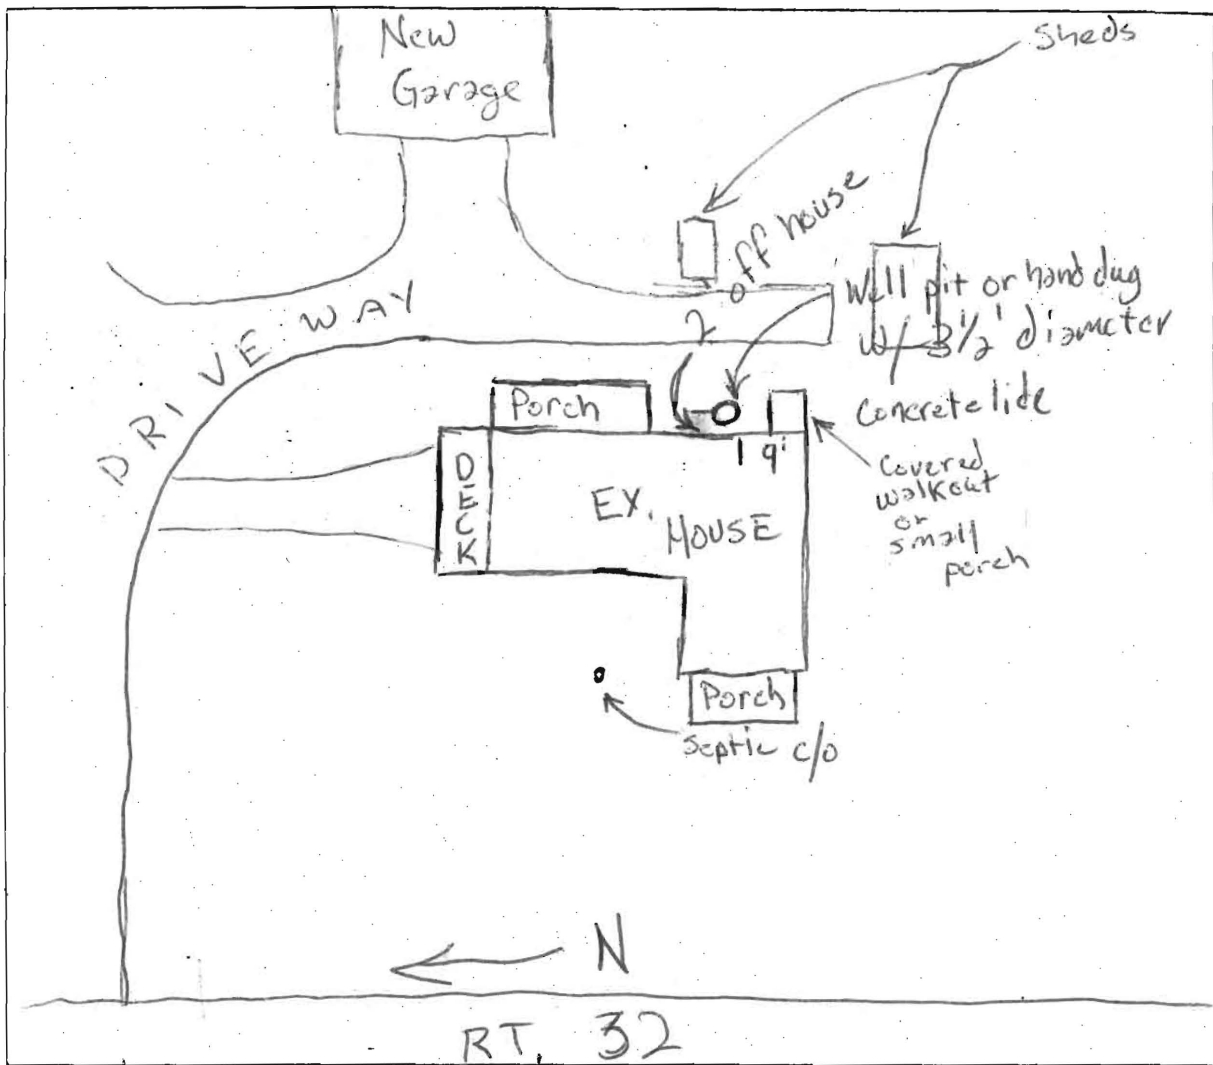 New
Garage
Sheds
2' off house
Well pit or hand dug
w/ 3 1/2' diameter
Concrete lide
DRIVE WAY
Porch
9'
Covered
walkout
or
small
porch
DECK
EX.
HOUSE
Porch
Septic c/o
N
RT. 32